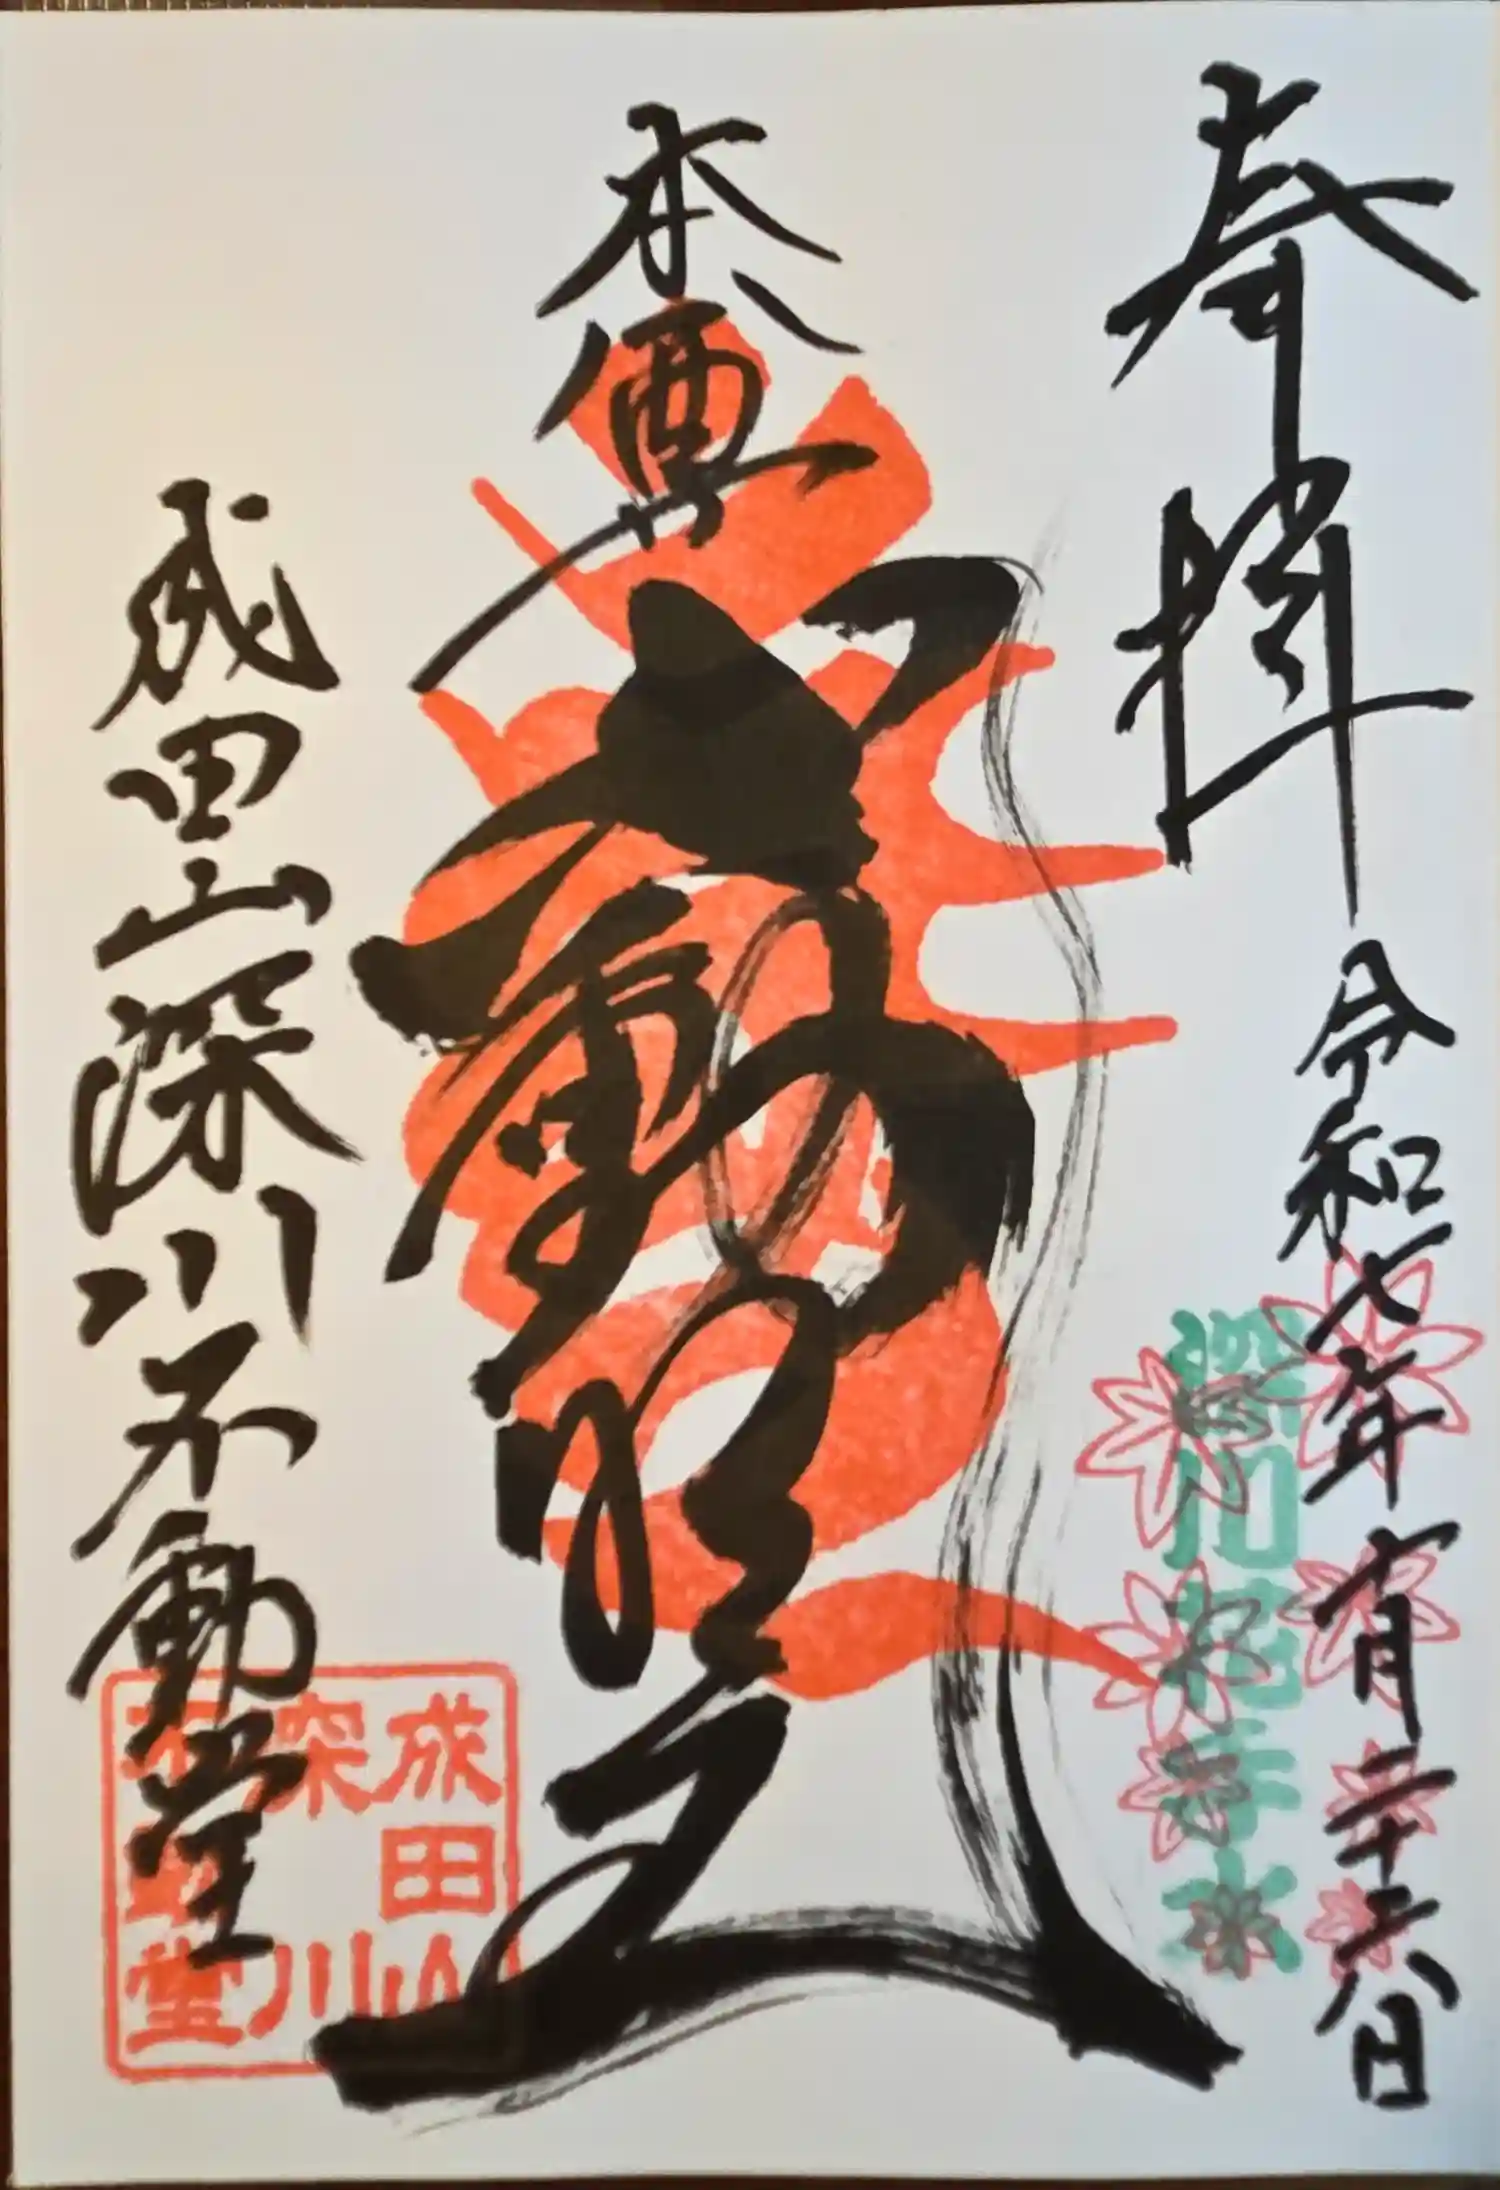 奉拝
令和七年十一月二十六日
深川花手水
本尊
不動明王
成田山深川不動堂
成田山
深川
不動堂